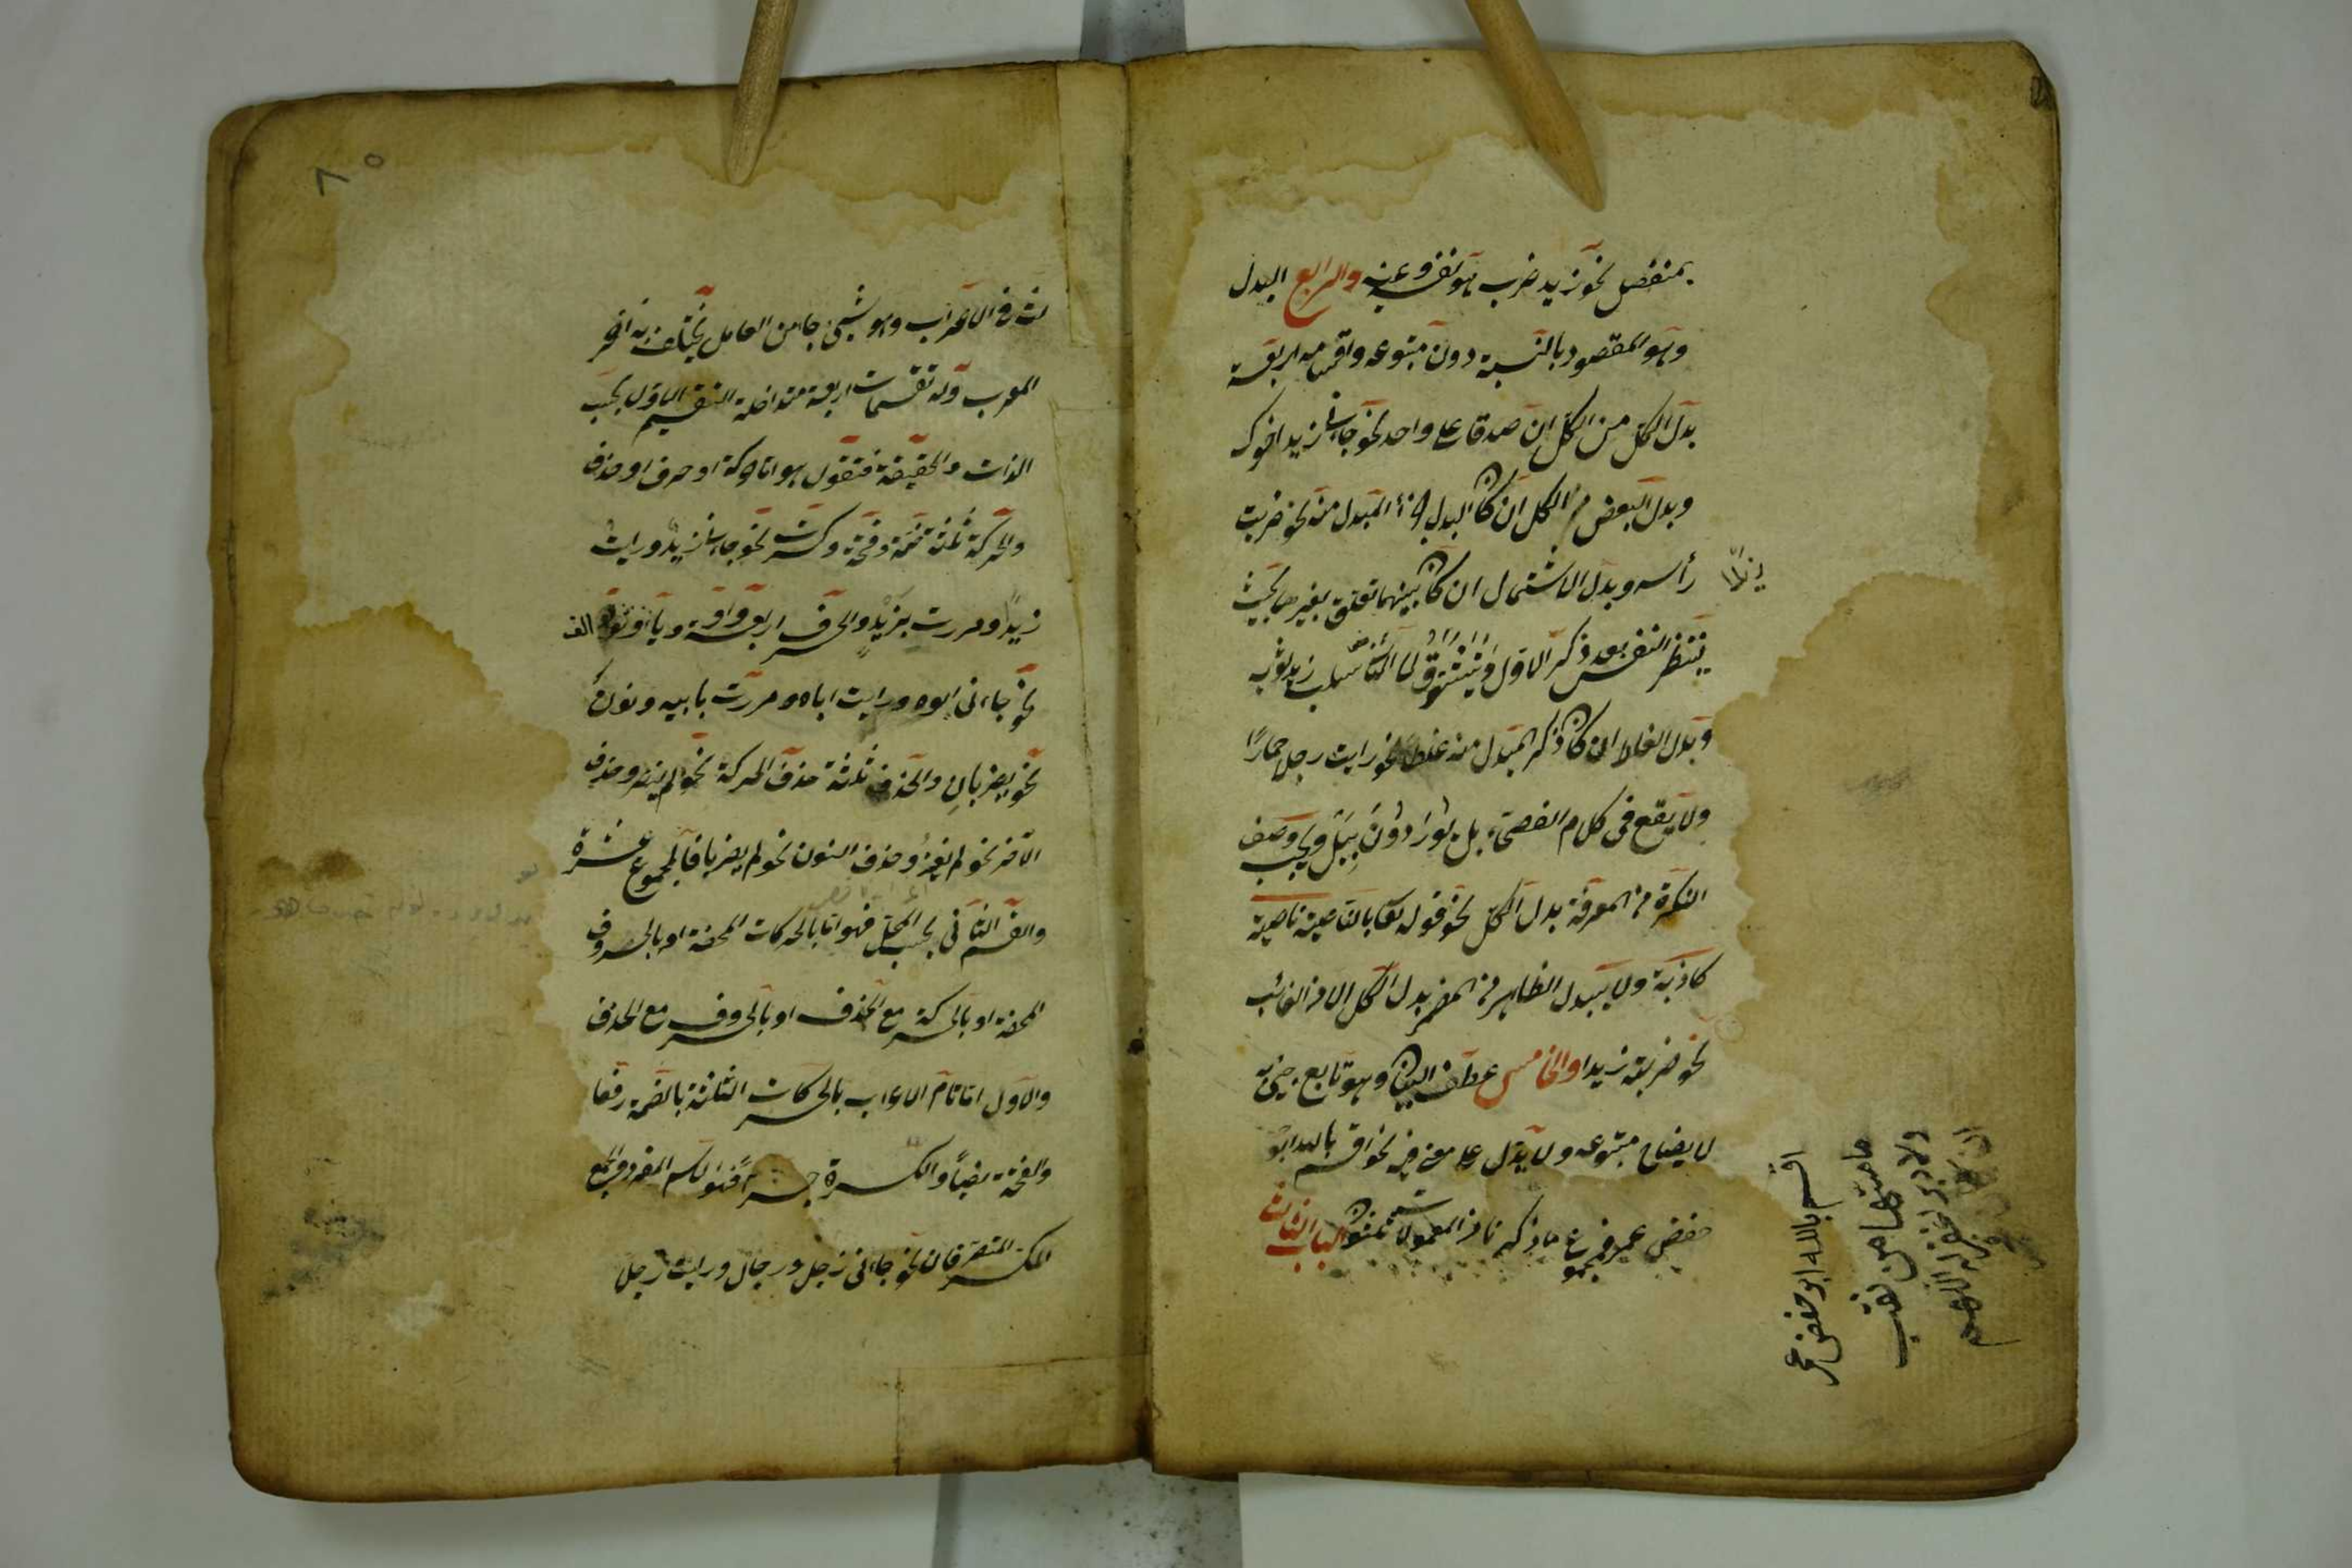 بمنفصل نحو زيد ضرب هو نفسه وعينه والرابع البدل
وهو المقصود بالنسبة دون متبوعه واقسامه اربعة
بدل الكل من الكل ان صدقا على واحد نحو جاءني زيد اخوك
وبدل البعض من الكل ان كان البدل جزء المبدل منه نحو ضربت
زيدا
رأسه وبدل الاشتمال ان كان بينهما تعلق بغيرهما بحيث
ينتظر النفس بعد ذكر الاول ويتشوق الى الثاني نحو سلب زيد ثوبه
وبدل الغلط ان كان ذكر المبدل منه غلطا نحو رايت رجلا حمارًا
ولا يقع في كلام الفصحاء بل يوردون ببل ويجب وصف
النكرة من المعرفة بدل الكل نحو قوله تعا بالناصية ناصية
كاذبة ولا يبدل الظاهر من المضمر بدل الكل الا من الغائب
نحو ضربته زيدا والخامس عطف البيان وهو تابع جئ به
لايضاح متبوعه ولا يدل على معنى فيه نحو اقسم بالله ابو
حفص عمر فمجموع ما ذكرنا من المعمولات ثلثون الباب الثالث
اقسم بالله ابو حفص عمر
ما مسها من نقب
ولا دبر اغفر له اللهم
ان كان فجر
لث في الاعراب وهو شئ جاء من العامل يختلف به اخر
المعرب وله تقسيمات اربعة متداخلة التقسيم الاول بحسب
الذات والحقيقة فتقول هو اما حركة او حرف او حذف
والحركة ثلثة ضمة وفتحة وكسرة نحو جاءني زيدٌ ورايت
زيدًا ومررت بزيدٍ والحرف اربعة واو وياء والف
نحو جاءنى ابوه ورايت اباه ومررت بابيه ونون
نحو يضربانِ والحذف ثلثة حذف الحركة نحو لم ينصر وحذف
الآخر نحو لم يغزُ وحذف النون نحو لم يضربا فالمجموع عشرة
والقسم الثاني بحسب المحل فهو اما بالحركات المحضة او بالحروف
المحضة او بالحركة مع الحذف او بالحروف مع الحذف
والاول اما تام الاعراب بالحركات الثلثة بالضمة رفعا
والفتحة نصبًا والكسرة جرًا فهو الاسم المفرد والجمع
المكسر المنصرفان نحو جاءني رجل ورجال ورايت رجلا